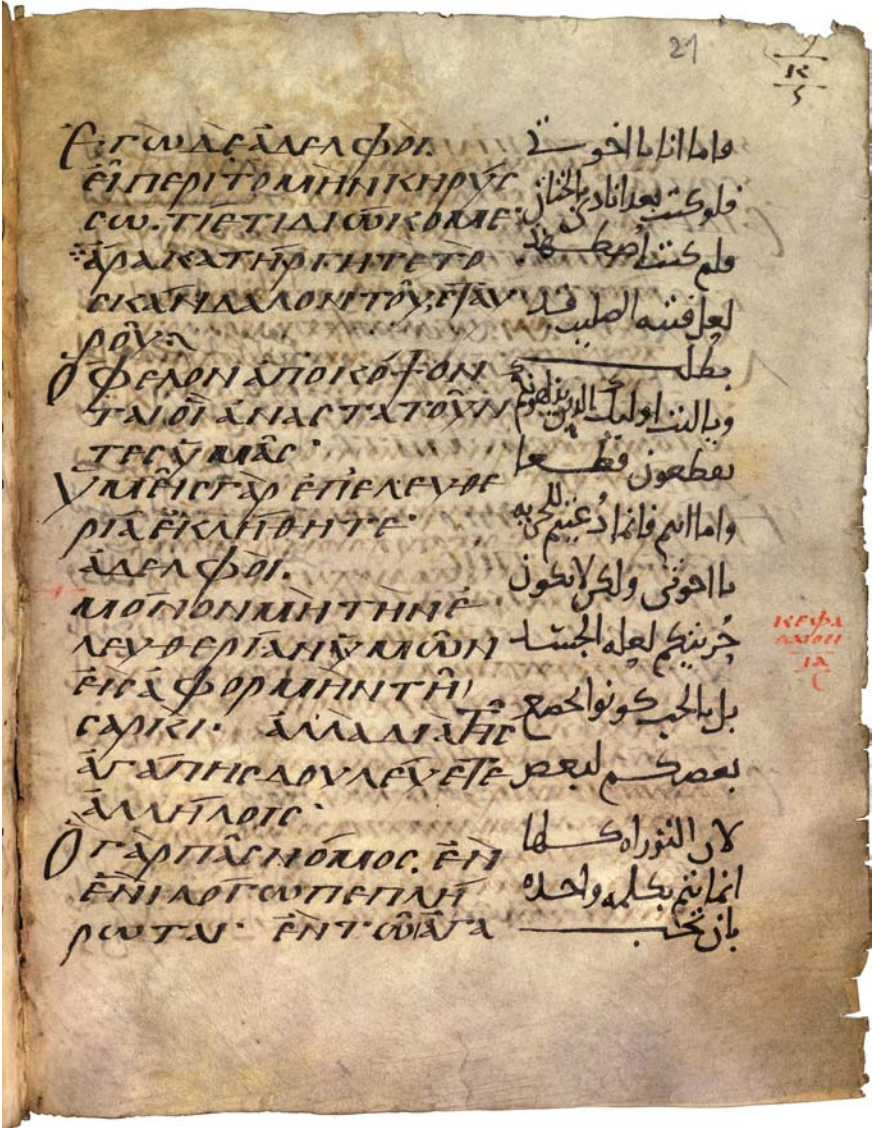 21
Κς
Ἐγὼ δὲ ἀδελφοί.
εἰ περιτομὴν κηρύς
σω. τί ἔτι διώκομε·
ἄρα κατήργητε τὸ
σκάνδαλον τοῦ σταυ
ροῦ
Ὄφελον ἀποκόψον
ται οἱ ἀναστατοῦν
τες ὑμᾶς·
Ὑμεῖς γὰρ ἐπελευθε
ρία ἐκλήθητε·
ἀδελφοί.
μόνον μὴ τὴν ἐ
λευθερίαν ὑμῶν
εἰς ἀφορμὴν τῆι
σαρκί· ἀλλὰ διὰ τῆς
ἀγάπης δουλεύετε
ἀλλήλοις·
Ὁ γὰρ πᾶς νόμος. ἐν
ἑνὶ λόγω πεπλή
ρωται· ἐν τῶ ἀγα
فاما انا يا اخوتي
فلو كنت بعد انادي بالختان
فلم كنت اضطهد
لعل فتنه الصليب قد
بطلت
ويا ليت اوليك الذين
يقطعون قطعا
واما انتم فانما دعيتم للحريه
يا اخوتي ولكن لا يكون
حريتكم لعله الجسد
بل بالحب كونوا
بعضكم لبعض
لان التوراه كلها
انما تتم بكلمه واحده
بان تحب
ΚΕΦΑ
ΛΑΙΟΝ
ΙΑ